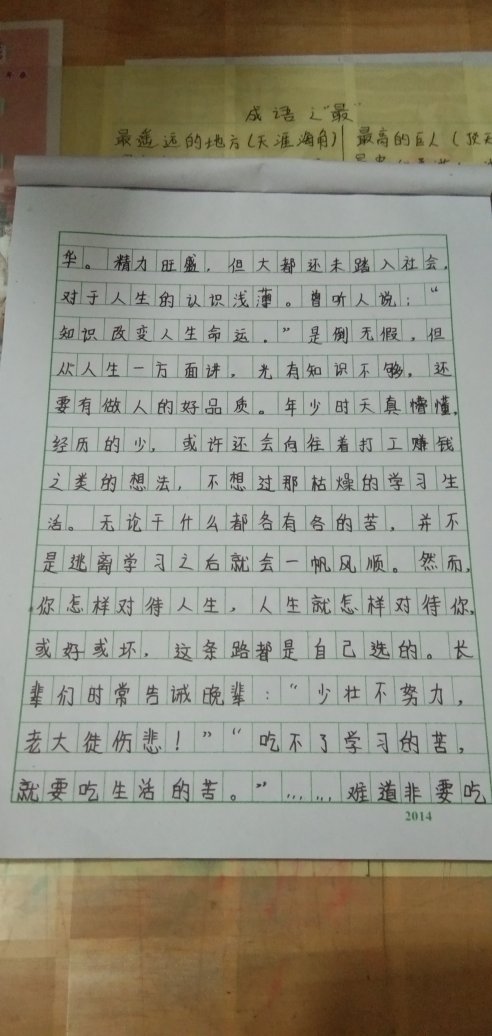 成语之“最”
最遥远的地方(天涯海角) 最高的巨人(顶天
华。精力旺盛，但大都还未踏入社会，
对于人生的认识浅薄。曾听人说：“
知识改变人生命运。”是倒无假，但
从人生一方面讲，光有知识不够，还
要有做人的好品质。年少时天真懵懂，
经历的少，或许还会向往着打工赚钱
之类的想法，不想过那枯燥的学习生
活。无论干什么都各有各的苦，并不
是逃离学习之后就会一帆风顺。然而，
你怎样对待人生，人生就怎样对待你，
或好或坏，这条路都是自己选的。长
辈们时常告诫晚辈：“少壮不努力，
老大徒伤悲！”“吃不了学习的苦，
就要吃生活的苦。”……难道非要吃
2014